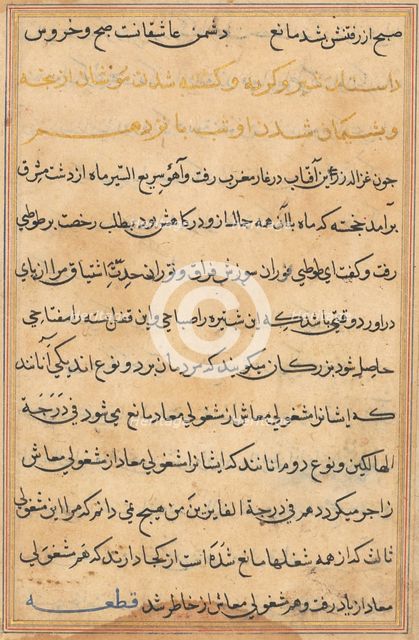 صبح از رفتنش بشد مانع دشمن عاشقانست صبح و خروس
داستان شیر و گربه و کشته شدن موشان از بچه
و پشیمان شدن او شب پانزدهم
چون غزاله زرین آفتاب در غار مغرب رفت و آهو سریع السیر ماه از دشت مشرق
برآمد خجسته که ماه با آن همه جمال از و در کاهش بود بطلب رخصت بر طوطی
رفت و گفت ای طوطی فوران سورش فراق و ثوران حدت اشتیاق مرا از پای
درآورد وقتی باشد که این شب تیره را صباحی و این قفل بسته را مفتاحی
حاصل شود بزرگان میگویند که مردمان بر دو نوع اند یکی آنانند
که ایشانرا مشغولی معاش از مشغولی معاد مانع می شود فی درجة
الهالکین و نوع دوم آنانند که ایشانرا مشغولی معاد از مشغولی معاش
زاجر میگردد هم فی درجة الفایزین من هیچ نمی دانم که مرا این مشغولی
ثالث که از همه شغلها مانع شده است از کجا دارند که هم مشغولی
معاد از یاد رفت و هم مشغولی معاش از خاطر شد قطعه